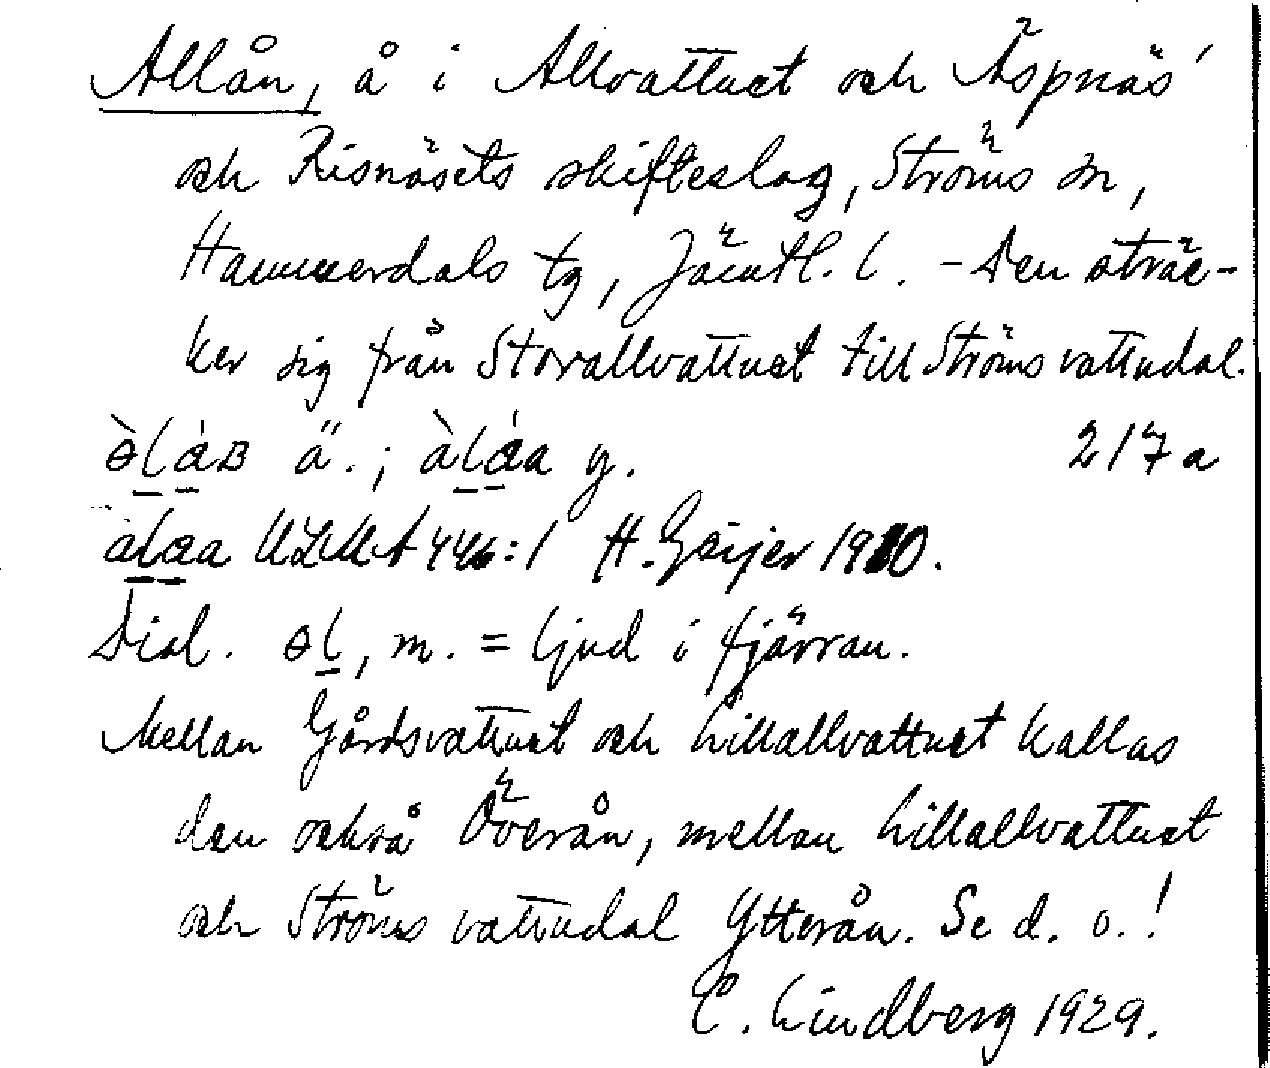 Allån, å i Allvattnet och Äspnäs'
och Risnäsets skifteslag, Ströms sn,
Hammerdals tg, Jämtl. l. - Den sträc-
ker sig från Storallvattnet till Ströms vattudal.
ä. ; y. 217a
ULMA 446:1 H. Geijer 1910.
Dial. m. = ljud i fjärran.
Mellan Gårdsvattnet och Lillallvattnet kallas
den också Överån, mellan Lillallvattnet
och Ströms vattudal Ytterån. Se d. o.!
C. Lindberg 1929.